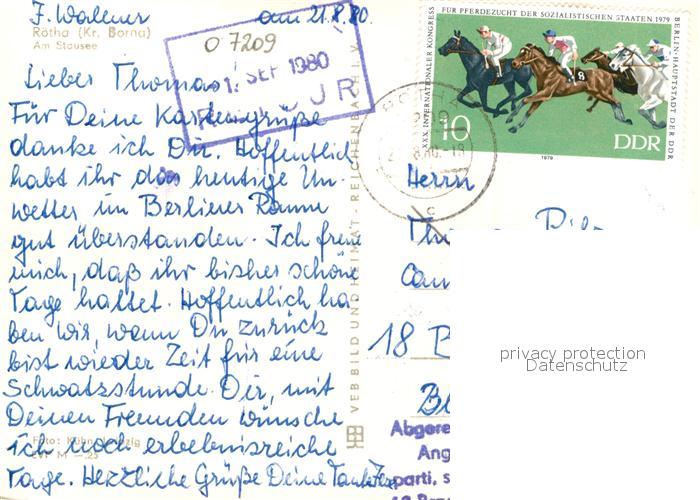 F. Wallner am 21.8.80.
Rötha (Kr. Borna)
Am Stausee
O 7209
1. SEP 1980
J R
Lieber Thomas!
Für Deine Kartengrüße
danke ich Dir. Hoffentlich
habt ihr das heutige Un-
wetter im Berliner Raum
gut überstanden. Ich freue
mich, daß ihr bisher schöne
Tage hattet. Hoffentlich ha-
ben wir, wenn Du zurück
bist wieder Zeit für eine
Schwatzstunde. Dir, mit
Deinen Freunden wünsche
ich noch erlebnisreiche
Tage. Herzliche Grüße Deine Tante
Foto: Kühn, Leipzig
VEB BILD UND HEIMAT · REICHENBACH I. V.
XXX. INTERNATIONALER KONGRESS FÜR PFERDEZUCHT DER SOZIALISTISCHEN STAATEN 1979 BERLIN-HAUPTSTADT DER DDR
8
10
DDR
1979
Herrn
18
privacy protection
Datenschutz
Abgere
Ang
parti, s